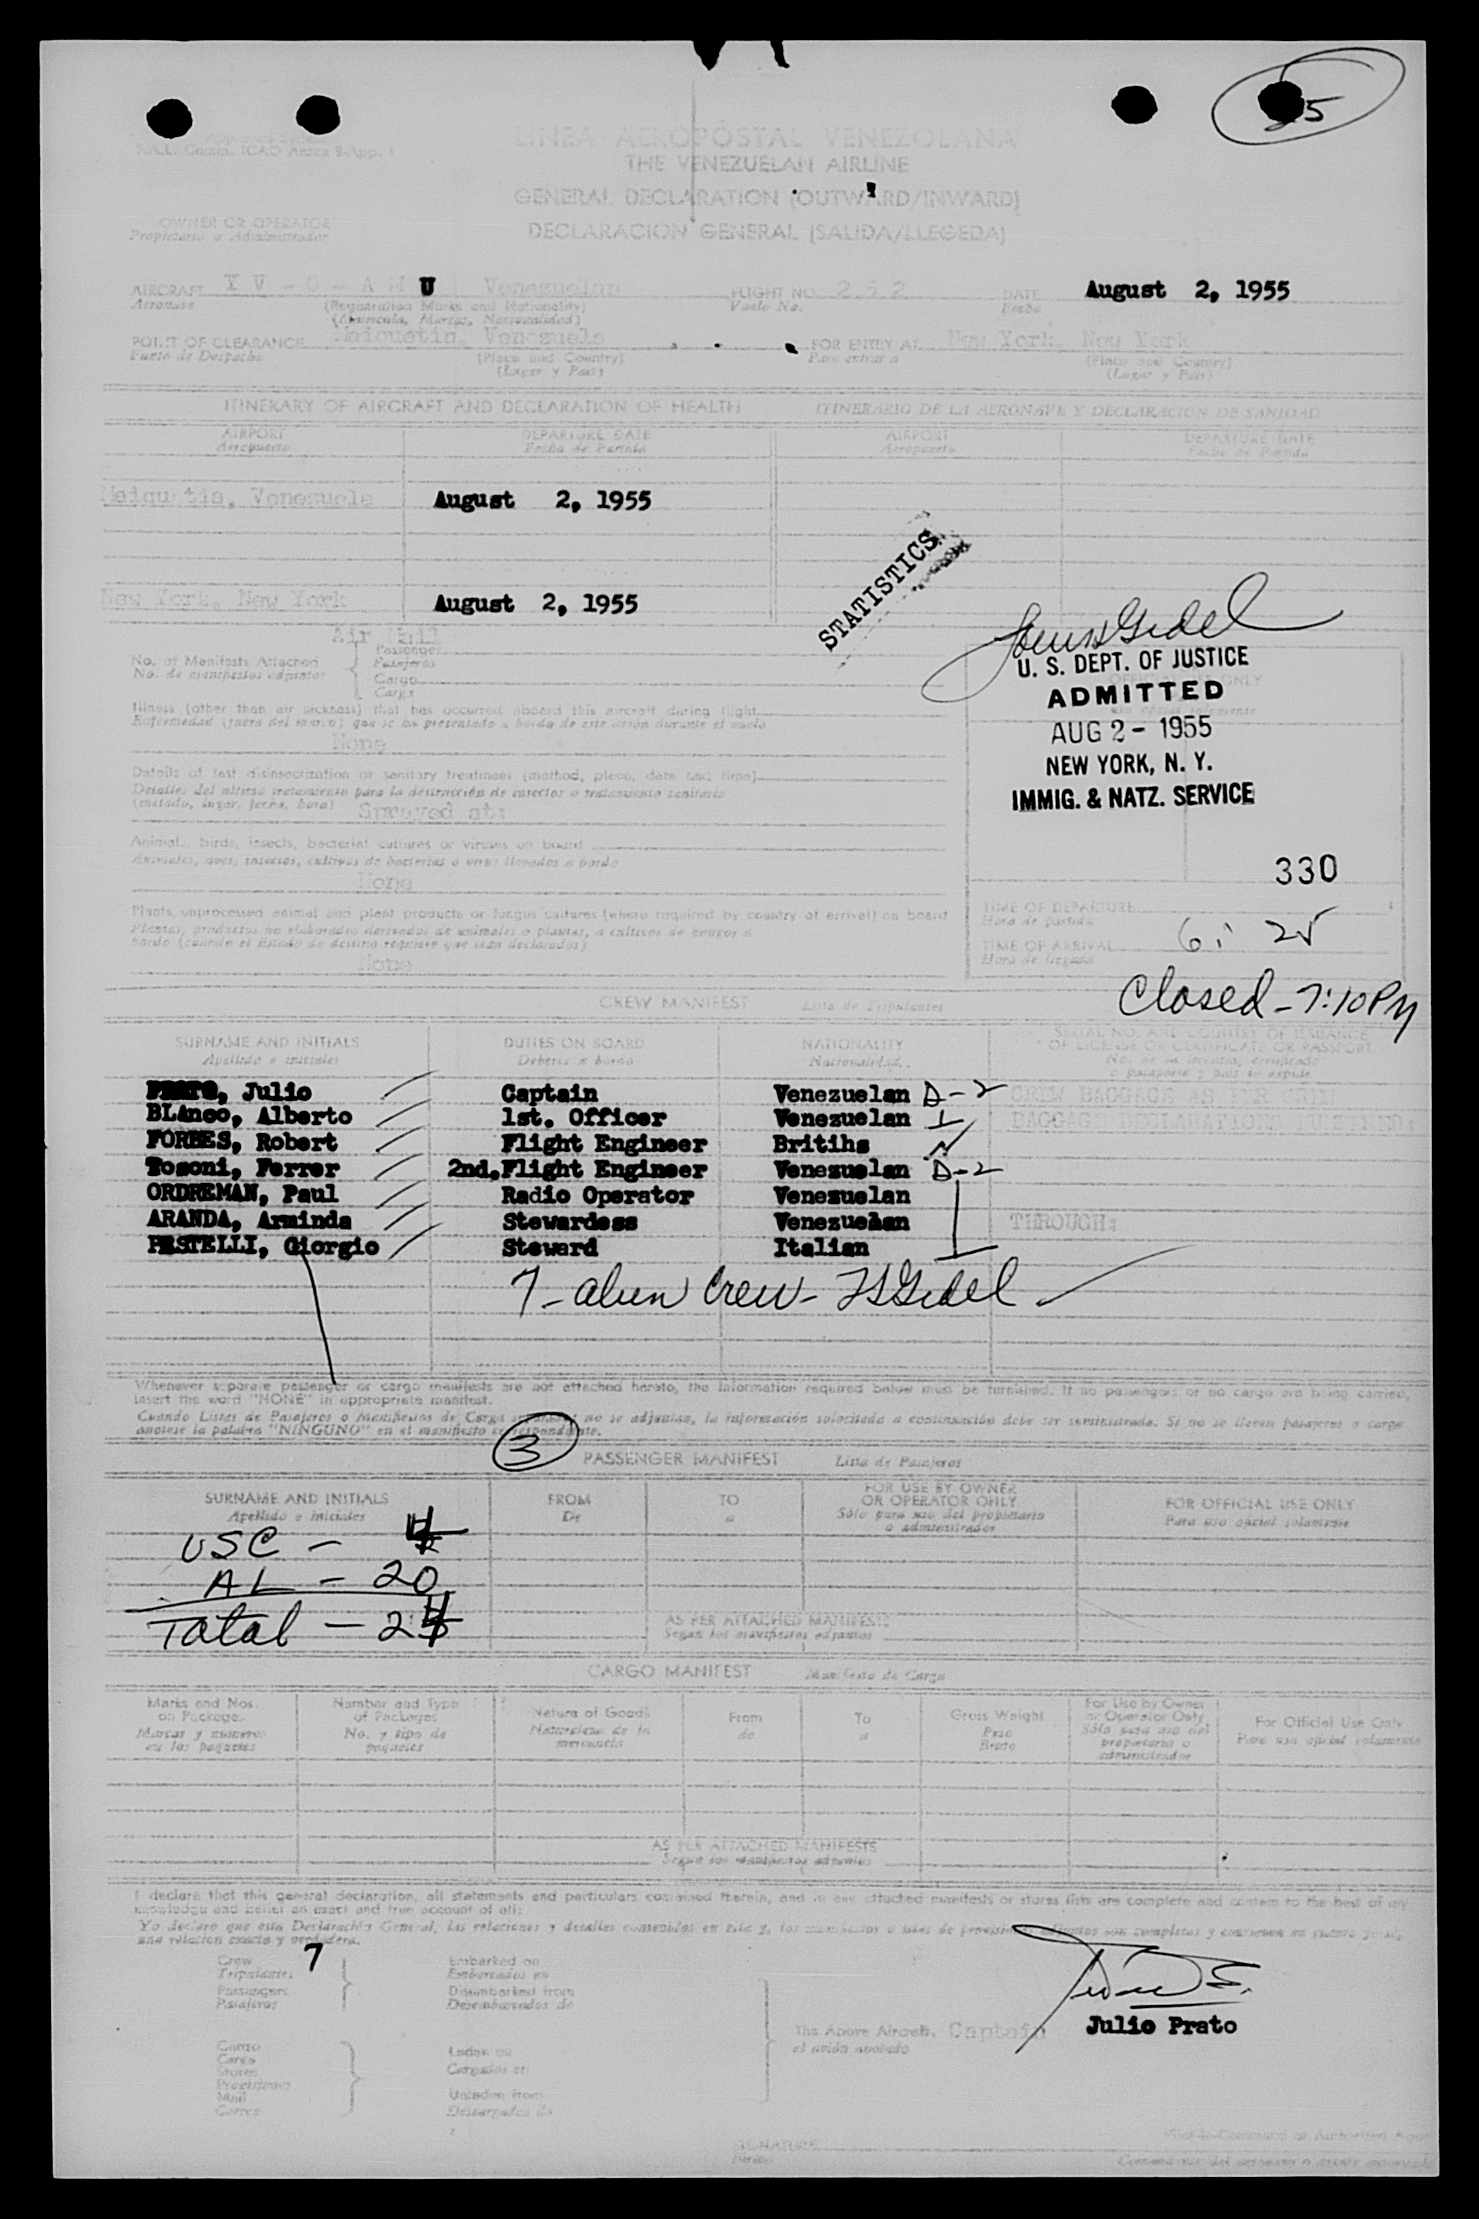 25
I.A.L. Conin. ICAO Annex 9-App. 1
LINEA AEROPOSTAL VENEZOLANA
THE VENEZUELAN AIRLINE
GENERAL DECLARATION (OUTWARD/INWARD)
DECLARACION GENERAL (SALIDA/LLEGEDA)
OWNER OR OPERATOR
Propietario o Administrador
AIRCRAFT Y V - C - A M U Venezuelan FLIGHT NO. 252 DATE August 2, 1955
Aeronave (Registration Marks and Nationality) Vuelo No. Fecha
(Matricula, Marcas, Nacionalidad)
POINT OF CLEARANCE Maiquetia, Venezuela FOR ENTRY AT New York, New York
Punto de Despacho (Place and Country) Para entrar a (Place and Country)
(Lugar y Pais) (Lugar y Pais)
ITINERARY OF AIRCRAFT AND DECLARATION OF HEALTH ITINERARIO DE LA AERONAVE Y DECLARACION DE SANIDAD
AIRPORT DEPARTURE DATE AIRPORT DEPARTURE DATE
Aeropuerto Fecha de Partida Aeropuerto Fecha de Partida
Maiquetia, Venezuela August 2, 1955
STATISTICS
New York, New York August 2, 1955
Air Mail
No. of Manifests Attached Passenger
No. de manifiestos adjuntos Pasajeros
Cargo
Carga
OFFICIAL USE ONLY
U. S. DEPT. OF JUSTICE
ADMITTED
AUG 2 - 1955
NEW YORK, N. Y.
IMMIG. & NATZ. SERVICE
330
Illness (other than air sickness) that has occurred aboard this aircraft during flight
Enfermedad (fuera del mareo) que se ha presentado a bordo de este avión durante el vuelo
None
Details of last disinsectization or sanitary treatment (method, place, date and time)
Detalles del ultimo tratamiento para la destrucción de insectos o tratamiento sanitario
(metodo, lugar, fecha, hora) Sprayed at:
Animals, birds, insects, bacterial cultures or viruses on board
Animales, aves, insectos, cultivos de bacterias o virus llevados a bordo
None
Plants, unprocessed animal and plant products or fungus cultures (where required by country of arrival) on board
Plantas, productos no elaborados derivados de animales o plantas, o cultivos de hongos a
bordo (cuando el Estado de destino requiere que sean declarados)
None
TIME OF DEPARTURE
Hora de partida
TIME OF ARRIVAL 6:25
Hora de llegada
Closed - 7:10 PM
CREW MANIFEST Lista de Tripulantes
SURNAME AND INITIALS DUTIES ON BOARD NATIONALITY SERIAL NO. AND COUNTRY OF ISSUANCE
Apellido e iniciales Deberes a bordo Nacionalidad OF LICENSE OR CERTIFICATE OR PASSPORT
PRATO, Julio Captain Venezuelan D-2 CREW BAGGAGE AS PER
BLAnco, Alberto 1st. Officer Venezuelan BAGGAGE DECLARATION
FORBES, Robert Flight Engineer Britihs
Tosoni, Ferrer 2nd. Flight Engineer Venezuelan D-2
ORDREMAN, Paul Radio Operator Venezuelan
ARANDA, Arminda Stewardess Venezuelan THROUGH:
PESTELLI, Giorgio Steward Italian
7 - alien crew - LSGidel
Whenever separate passenger or cargo manifests are not attached hereto, the information required below must be furnished. If no passengers or no cargo are being carried,
insert the word "NONE" in appropriate manifest.
Cuando Listas de Pasajeros o Manifiestos de Carga separadas no se adjuntan, la información solicitada a continuación debe ser suministrada. Si no se llevan pasajeros o carga
anotese la palabra "NINGUNO" en el manifiesto correspondiente.
3
PASSENGER MANIFEST Lista de Pasajeros
SURNAME AND INITIALS FROM TO FOR USE BY OWNER FOR OFFICIAL USE ONLY
Apellido e iniciales De a OR OPERATOR ONLY Para uso oficial solamente
Sólo para uso del propietario
o administrador
USC - 4
AL - 20
Total - 24
AS PER ATTACHED MANIFESTS
Segun los manifiestos adjuntos
CARGO MANIFEST Manifiesto de Carga
Marks and Nos. Number and Type Nature of Goods From To Gross Weight For Use by Owner For Official Use Only
on Packages of Packages Naturaleza de la de a Peso or Operator Only Para uso oficial solamente
Marcas y numeros No. y tipo de mercancia Bruto Sólo para uso del
en los paquetes paquetes propietario o
administrador
AS PER ATTACHED MANIFESTS
Segun los manifiestos adjuntos
I declare that this general declaration, all statements and particulars contained therein, and in any attached manifests or stores lists are complete and contain to the best of my
knowledge and belief an exact and true account of all:
Yo declaro que esta Declaración General, las relaciones y detalles contenidos en ésta y los manifiestos o listas de provisiones adjuntos son completos y contienen
una relacion exacta y verdadera.
Crew 7 Embarked on
Tripulantes Embarcados en
Passengers Disembarked from
Pasajeros Desembarcados de
Julio Prato
The Above Aircraft. Captain
el avión anotado
Cargo Laden on
Carga Cargados en
Stores
Provisiones
Mail Unladen from
Correo Descargados de
SIGNATURE
Firma
Pilot-in-Command or Authorized Agent